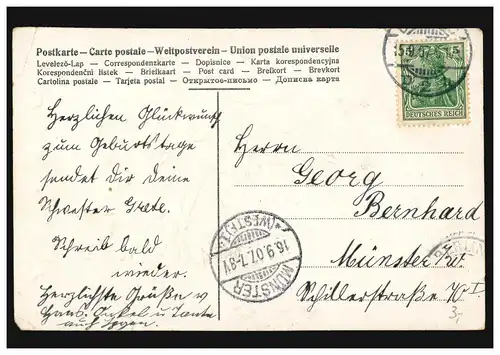 Postkarte – Carte postale – Weltpostverein – Union postale universelle
Levelező-Lap — Correspondenzkarte — Dopisnice — Karta korespondencyjna
Korespondenční listek — Briefkaart — Post card — Brefkort — Brevkort
Cartolina postale — Tarjeta postal — Открытое-письмо — Дописна карта
5 5
DEUTSCHES REICH
Herzlichen Glückwunsch
zum Geburtstage
sendet Dir Deine
Schwester Grete.
Schreib bald
wieder.
Herzlichste Grüße v
Hans. Onkel u Tante
auch
Herrn
Georg
Bernhard
Münster i/w.
Schillerstraße I
3,-
MÜNSTER
(WESTF.)
16.9.07.7-8V.